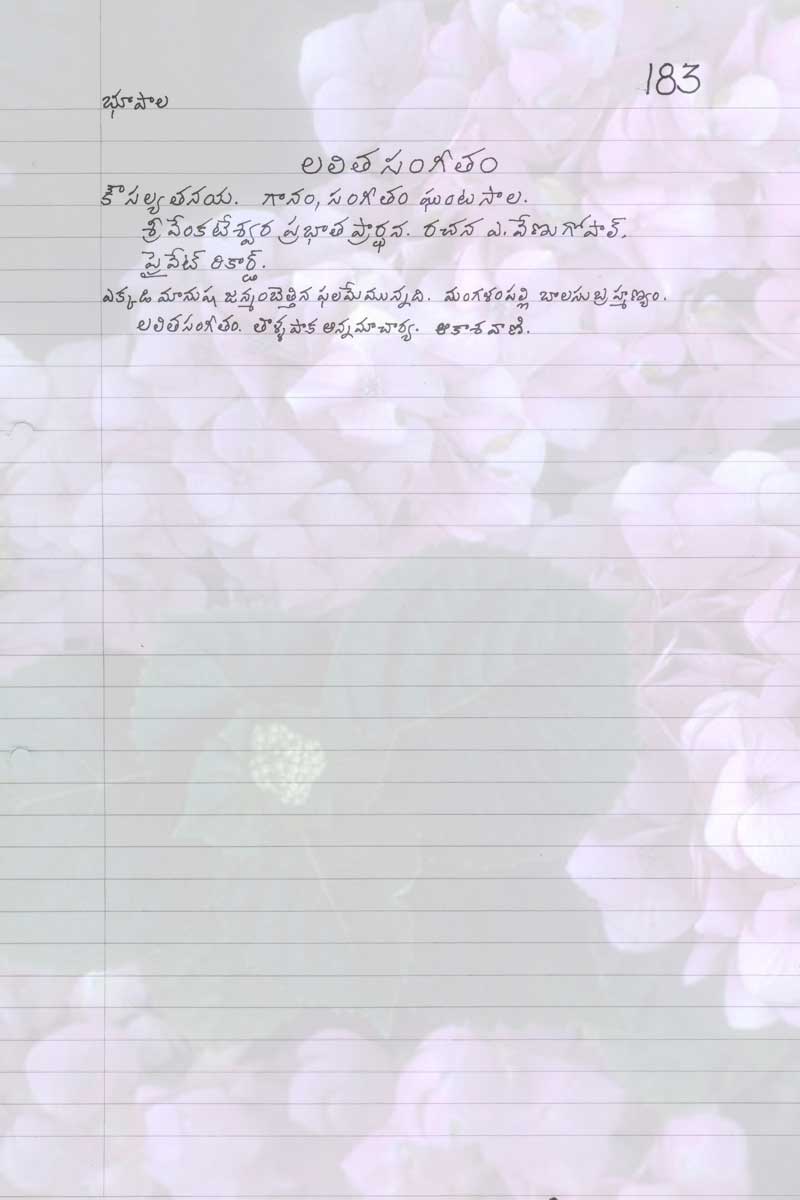 183
భూపాల
లలిత సంగీతం
కౌసల్య తనయ. గానం, సంగీతం ఘంటసాల.
శ్రీ వేంకటేశ్వర ప్రభాత ప్రార్థన. రచన ఎ. వేణుగోపాల్.
ప్రైవేట్ రికార్డ్.
ఎక్కడి మానుష జన్మంబెత్తిన ఫలమేమున్నది. మంగళంపల్లి బాలసుబ్రహ్మణ్యం.
లలితసంగీతం. తాళ్ళపాక అన్నమాచార్య. ఆకాశవాణి.